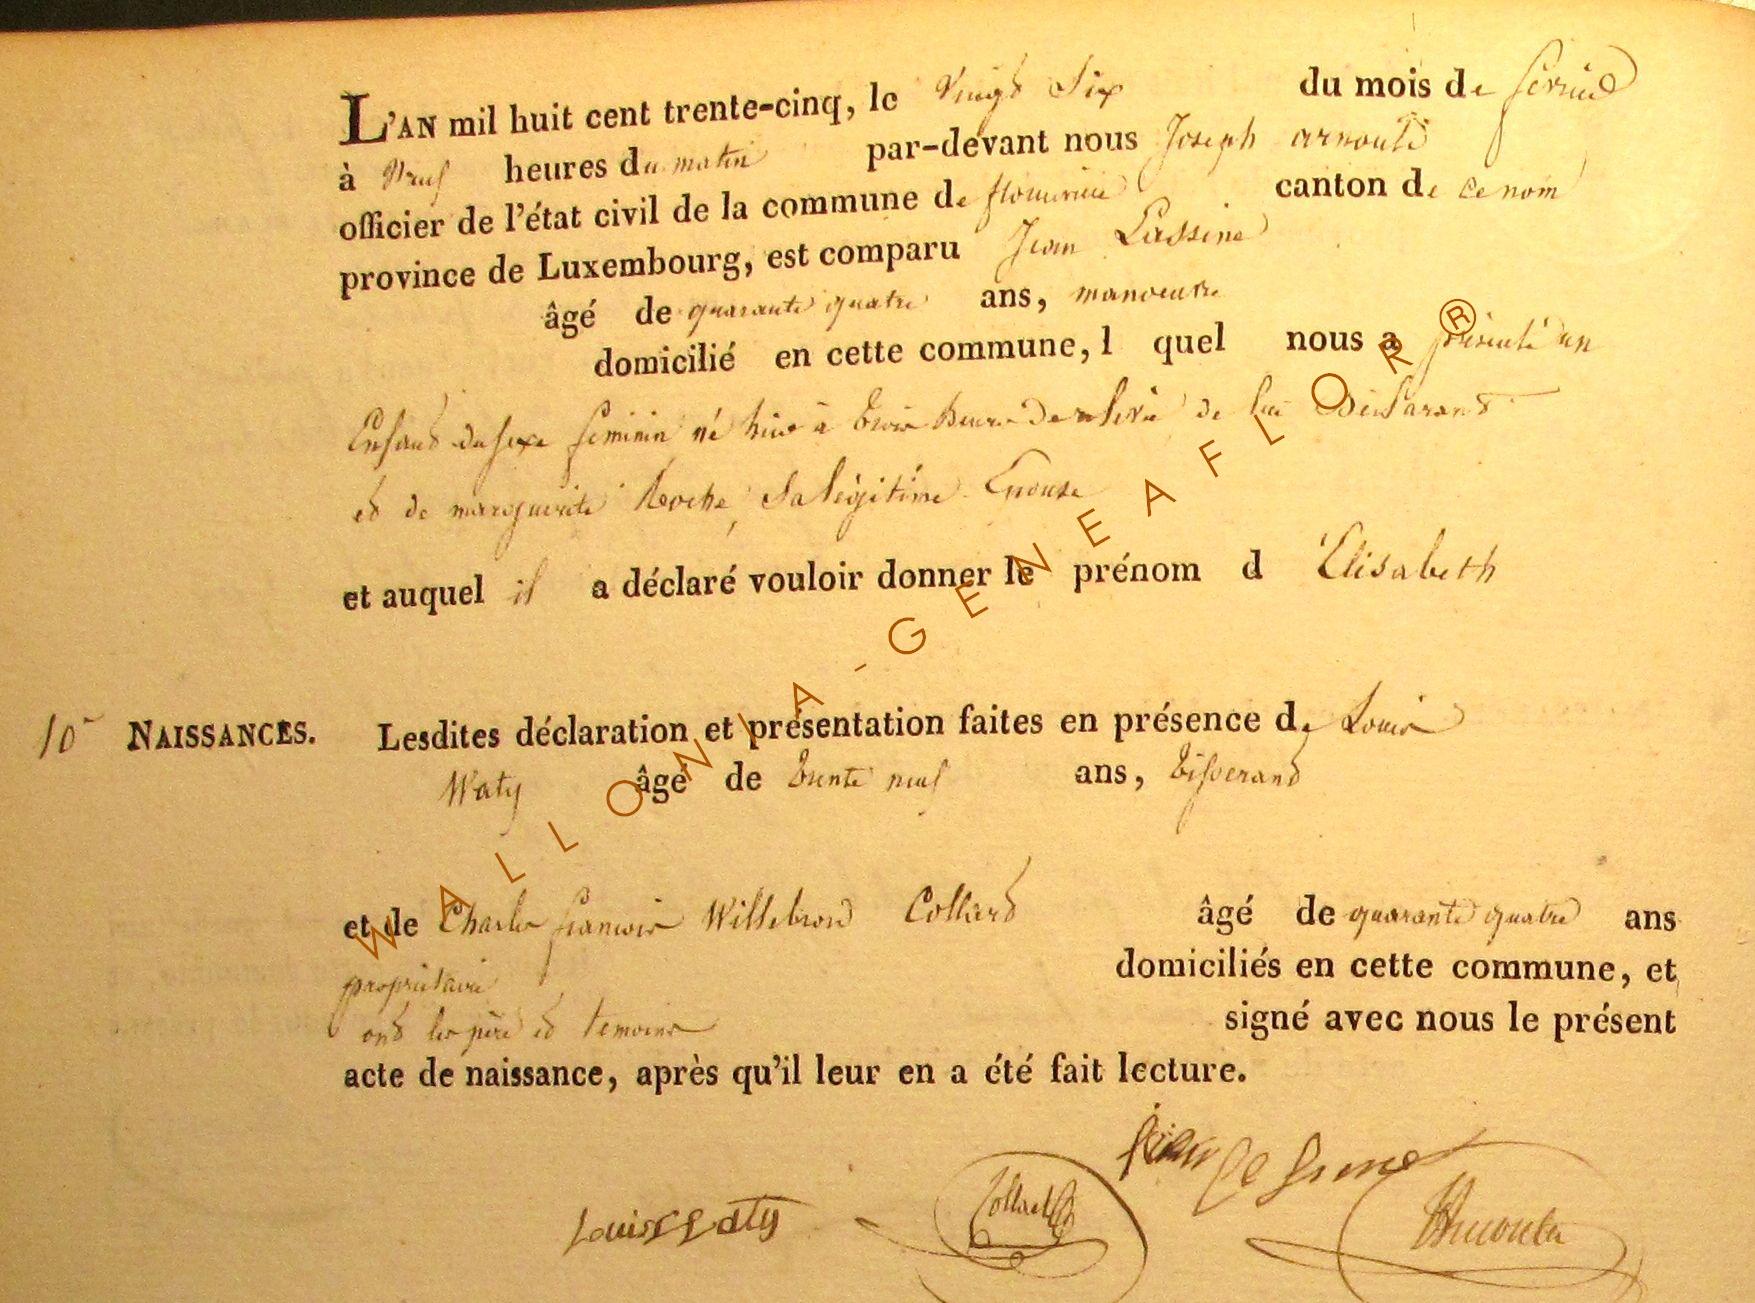 L'AN mil huit cent trente-cinq, le Vingt Six du mois de fevrier
à Neuf heures du matin par-devant nous Joseph arnould
officier de l'état civil de la commune de florenville canton de ce nom
province de Luxembourg, est comparu Jean Lassine
âgé de quarante quatre ans, manoeuvre
domicilié en cette commune, l quel nous a présenté un
Enfant du sexe feminin né hier à trois heures de relevé de lui déclarant
et de marguerite Roche, Sa légitime Epouse
et auquel il a déclaré vouloir donner le prénom d Elisabeth
10 NAISSANCES. Lesdites déclaration et présentation faites en présence de Louis
Waty âgé de trente neuf ans, tisserand
et de Charles françois Willebrord Collard âgé de quarante quatre ans
propriétaire domiciliés en cette commune, et
ont les père et temoins signé avec nous le présent
acte de naissance, après qu'il leur en a été fait lecture.
Louis Waty Collard
WALLONIA-GENEAFLOR®